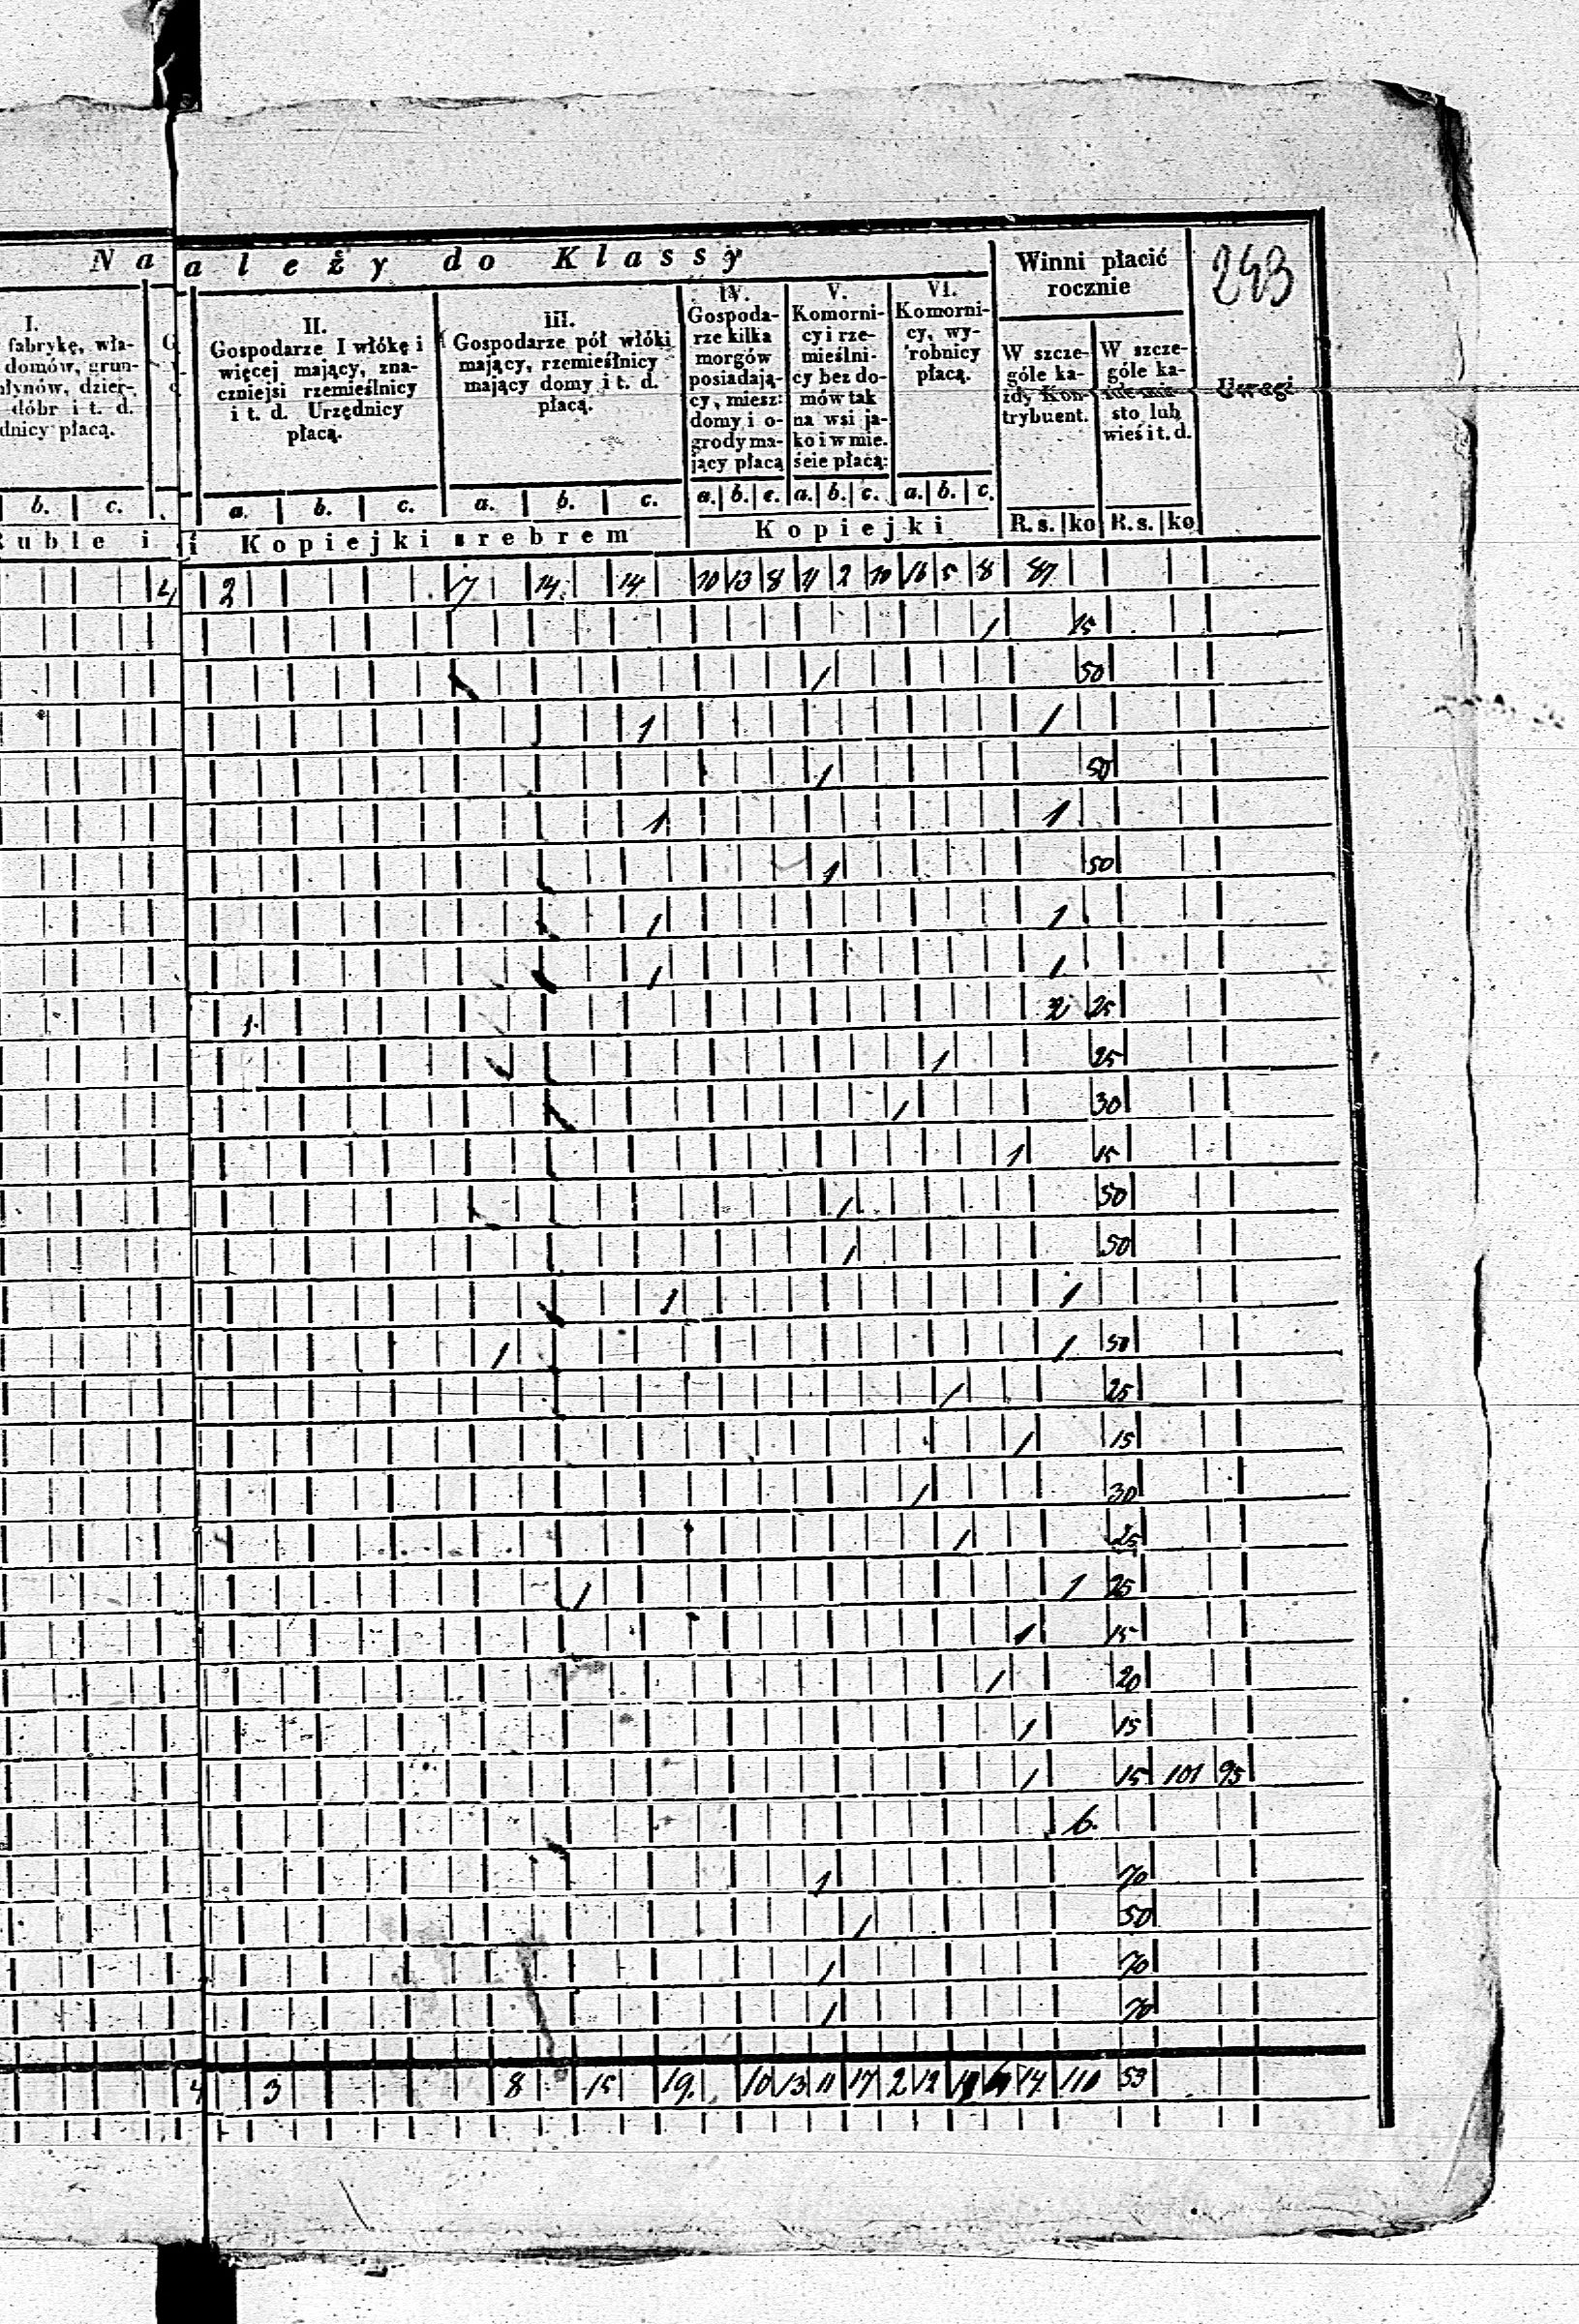 N a a l e ż y d o K l a s s y
Winni płacić rocznie
243
I.
fabrykę, wła-
domów, grun-
młynów, dzier-
dóbr i t. d.
dnicy płacą.
II.
Gospodarze I włókę i
więcej mający, zna-
czniejsi rzemieślnicy
i t. d. Urzędnicy
płacą.
III.
Gospodarze pół włóki
mający, rzemieślnicy
mający domy i t. d.
płacą.
IV.
Gospoda-
rze kilka
morgów
posiadają-
cy, miesz:
domy i o-
grody ma-
jący płacą
V.
Komorni-
cy i rze-
mieślni-
cy bez do-
mów tak
na wsi ja-
ko i w mie.
ście płacą:
VI.
Komorni-
cy, wy-
robnicy
płacą.
W szcze-
góle ka-
żdy Kon-
trybuent.
W szcze-
góle ka-
żde mia-
sto lub
wieś i t. d.
Uwagi
b. c. a. b. c. a. b. c. a. b. c. a. b. c. a. b. c.
Ruble i i Kopiejki srebrem Kopiejki R. s. ko R. s. ko
4 2 7 14 14 10 13 8 11 2 10 16 5 8 87
1 15
1 50
1 1
1 50
1 1
1 50
1 1
1 1
1 2 25
1 25
1 30
1 15
1 50
1 50
1 1
1 1 50
1 25
1 15
1 30
1 25
1 1 25
1 15
1 20
1 15
1 15 101 95
6
1 70
1 50
1 70
1 70
4 3 8 15 19 10 13 11 17 2 12 14 110 53